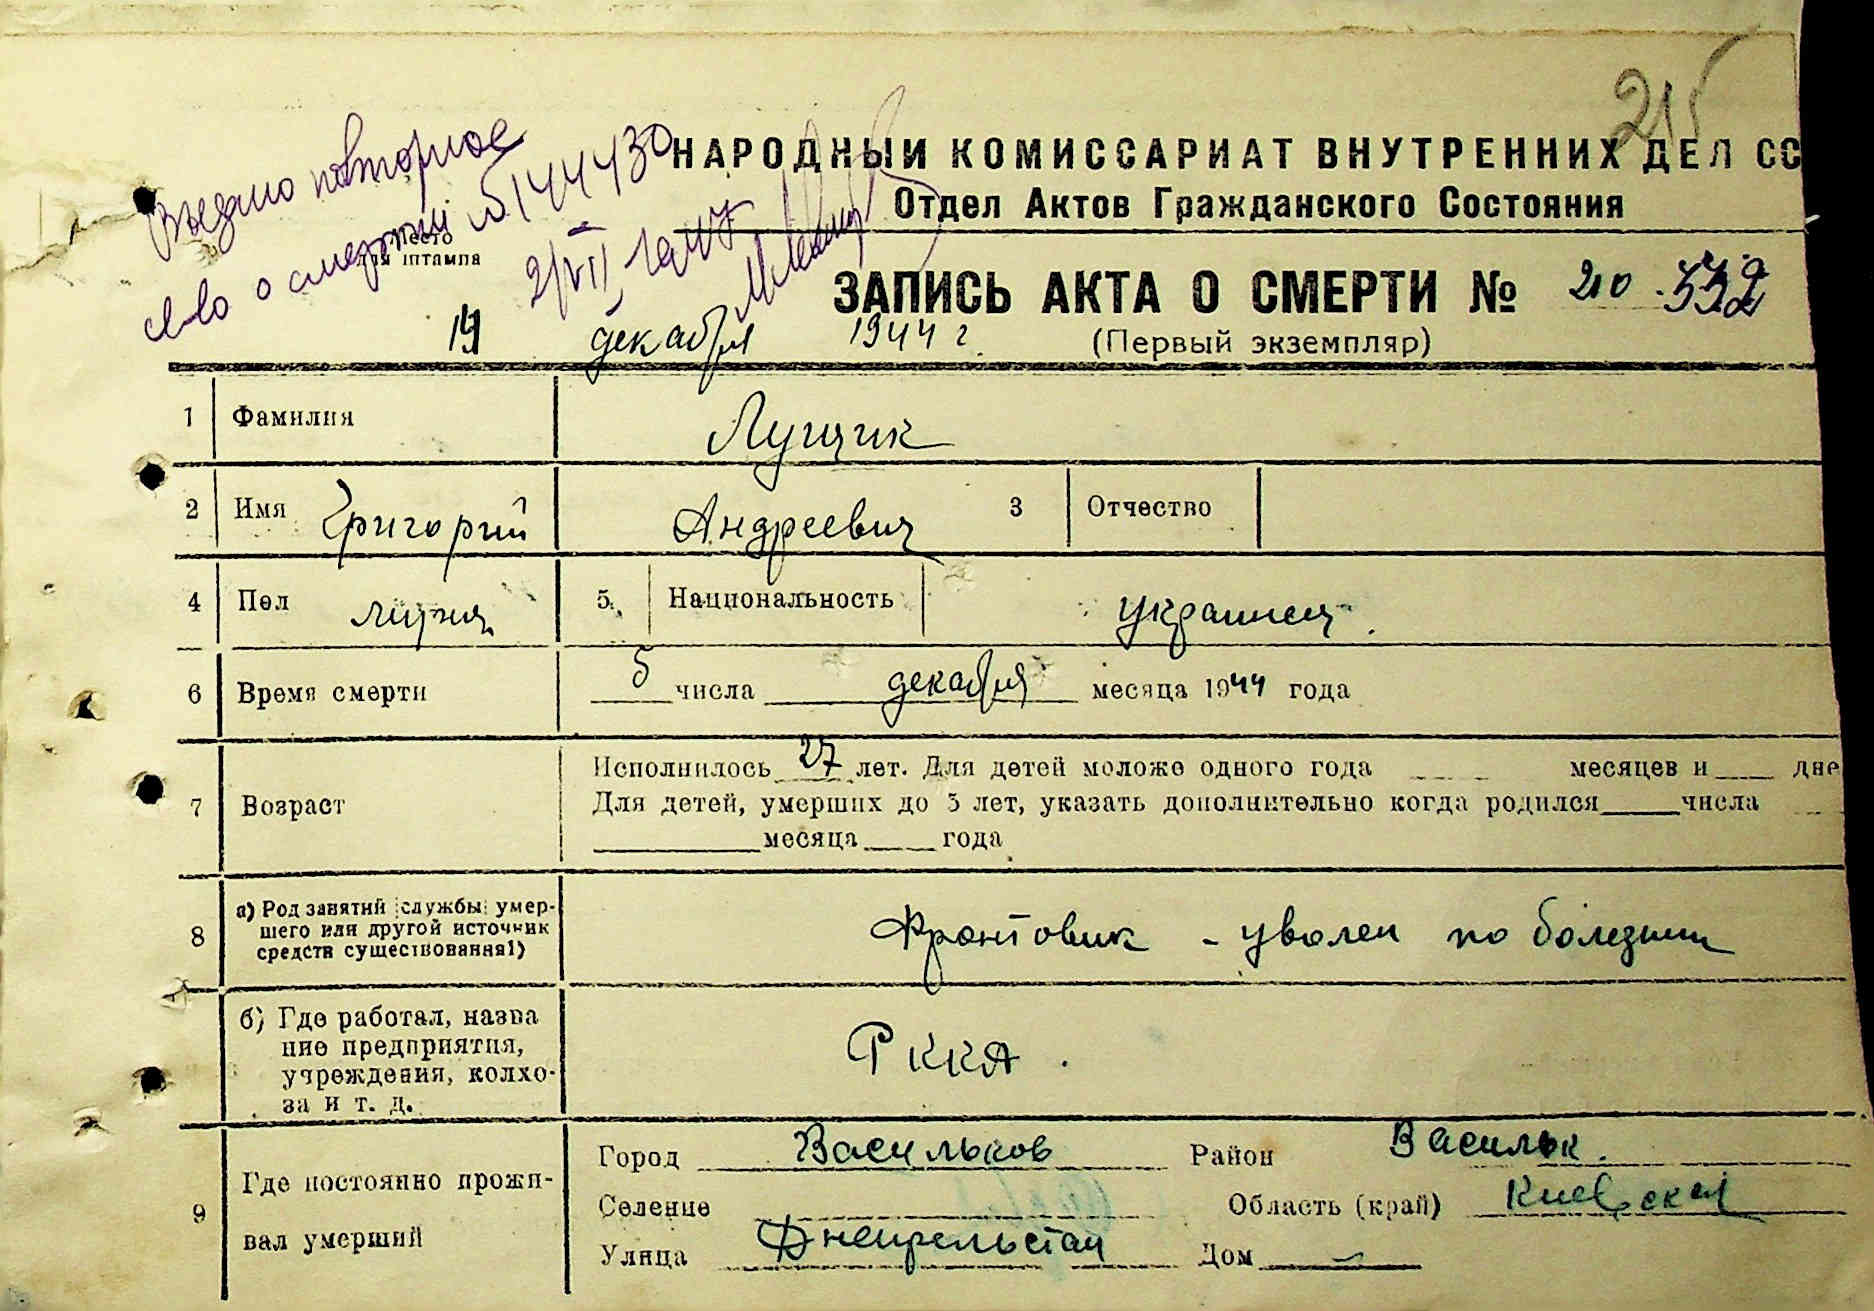 215
Выдано повторное
св-во о смерти № 144430
2/VII 1947
НАРОДНЫЙ КОМИССАРИАТ ВНУТРЕННИХ ДЕЛ СС
Отдел Актов Гражданского Состояния
Место
для штампа
ЗАПИСЬ АКТА О СМЕРТИ № 210
19 декабря 1944 г.
(Первый экземпляр)
1 Фамилия Лущик
2 Имя Григорий Андреевич 3 Отчество
4 Пол мужч. 5. Национальность украинец.
6 Время смерти 5 числа декабря месяца 1944 года
7 Возраст
Исполнилось 27 лет. Для детей моложе одного года месяцев и дне
Для детей, умерших до 3 лет, указать дополнительно когда родился числа
месяца года
8 а) Род занятий службы умер-
шего или другой источник
средств существования1)
Фронтовик - уволен по болезни
б) Где работал, назва
ние предприятия,
учреждения, колхо-
за и т. д.
РККА.
9 Где постоянно прожи-
вал умерший
Город Васильков Район Васильк.
Селение Область (край) Киевская
Улица Дом